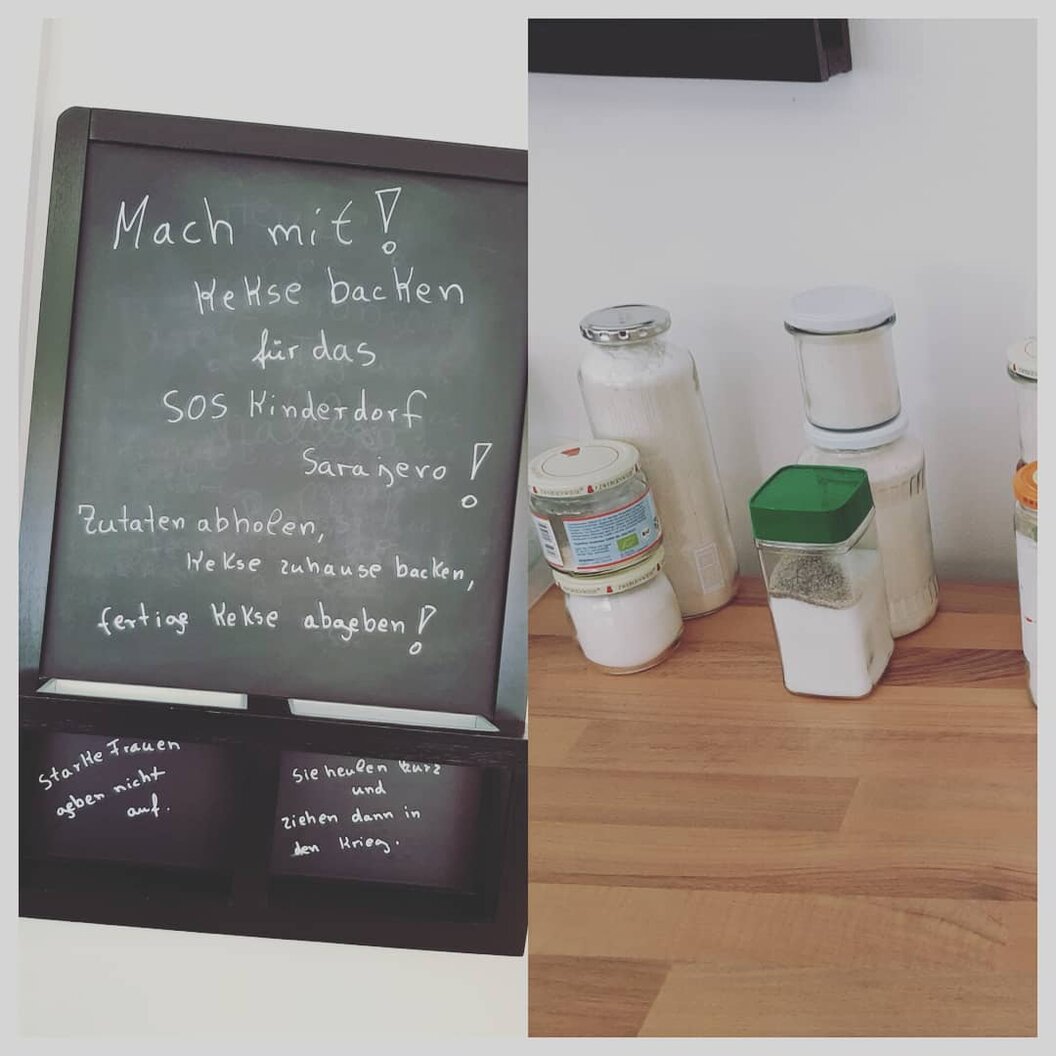 Mach mit!
Kekse backen
für das
SOS Kinderdorf
Sarajevo!
Zutaten abholen,
Kekse zuhause backen,
fertige Kekse abgeben!
Starke Frauen
geben nicht
auf.
Sie heulen kurz
und
ziehen dann in
den Krieg.